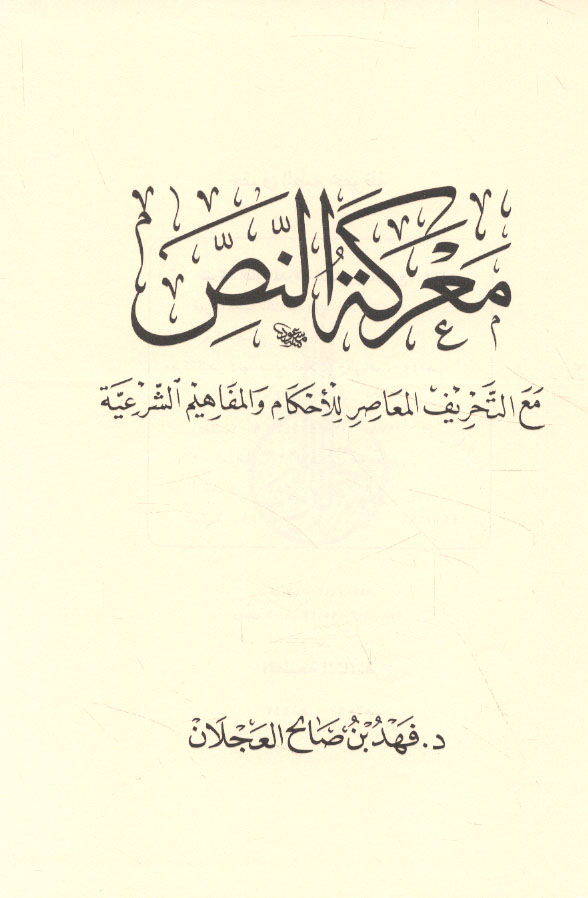 مَعْرَكَةُ النَّصِّ
مَعَ التَّحْرِيفِ المُعَاصِرِ لِلْأَحْكَامِ وَالمَفَاهِيمِ الشَّرْعِيَّة
د. فَهْدُ بْنُ صَالِح العَجْلَانْ